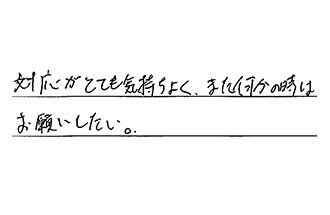 対応がとても気持ちよく、また何分の時は
お願いしたい。